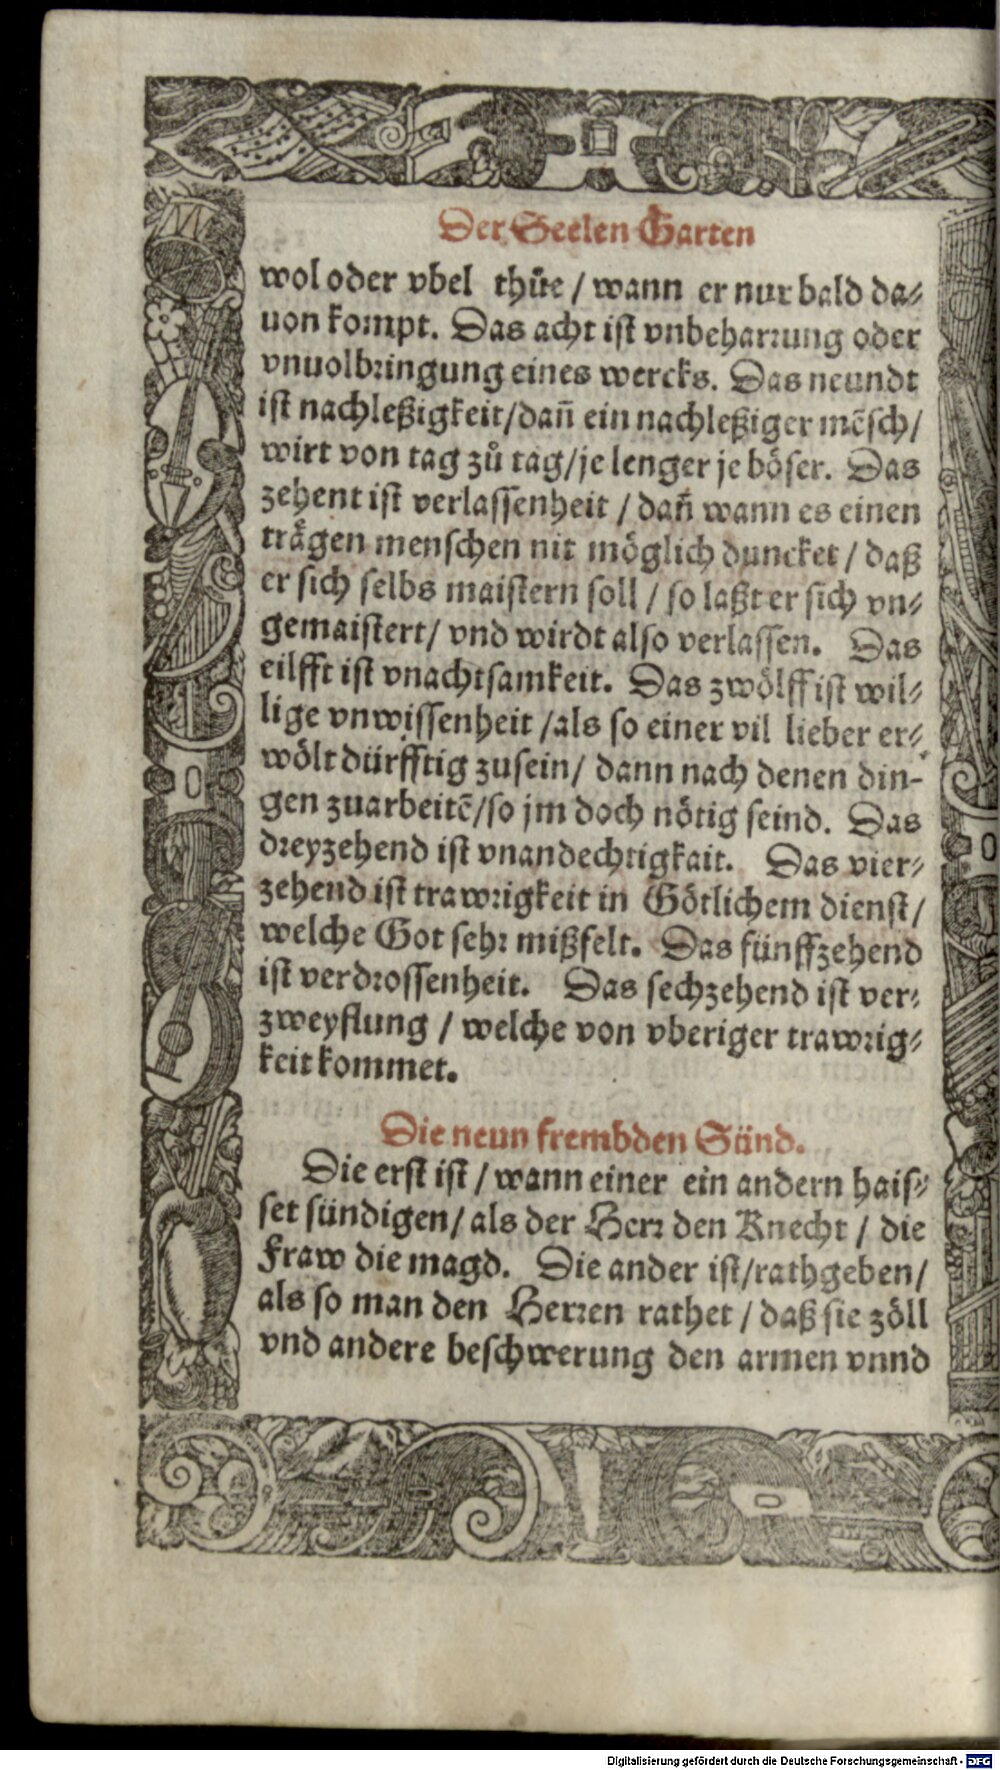 Der Seelen Garten
wol oder vbel thüe / wann er nur bald da⸗
uon kompt. Das acht ist vnbeharrung oder
vnuolbringung eines wercks. Das neundt
ist nachleßigkeit/dañ ein nachleßiger mẽsch/
wirt von tag zů tag/je lenger je böser. Das
zehent ist verlassenheit / dañ wann es einen
trågen menschen nit möglich duncket / daß
er sich selbs maistern soll / so laßt er sich vn⸗
gemaistert/ vnd wirdt also verlassen. Das
eilfft ist vnachtsamkeit. Das zwölff ist wil⸗
lige vnwissenheit /als so einer vil lieber er⸗
wölt dürfftig zusein/ dann nach denen din-
gen zuarbeitẽ/so jm doch nötig seind. Das
dreyzehend ist vnandechtigkait. Das vier⸗
zehend ist trawrigkeit in Götlichem dienst/
welche Got sehr mißfelt. Das fünffzehend
ist verdrossenheit. Das sechzehend ist ver⸗
zweyflung / welche von vberiger trawrig⸗
keit kommet.
Die neun frembden Sünd.
Die erst ist / wann einer ein andern hais⸗
set sündigen/ als der Herr den Knecht / die
Fraw die magd. Die ander ist/rathgeben/
als so man den Herren rathet / daß sie zöll
vnd andere beschwerung den armen vnnd
Digitalisierung gefördert durch die Deutsche Forschungsgemeinschaft - DFG